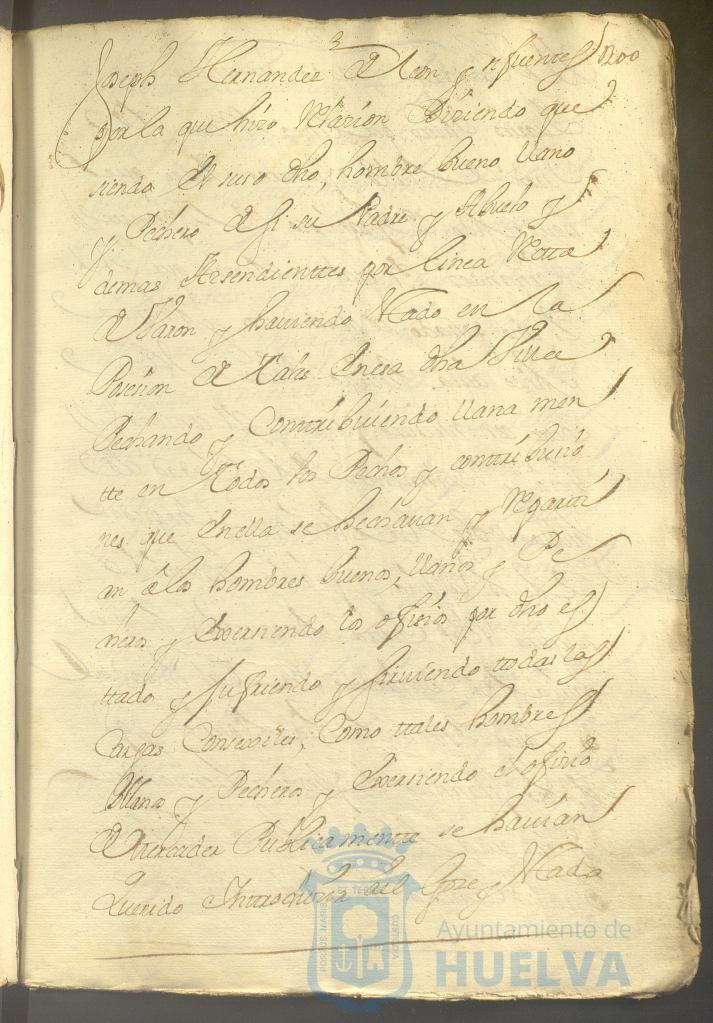 3
Joseph Hernandez de Leon y Zifuentes 1200
por la que hizo Relazion Diziendo que
siendo El suso dho, hombre bueno llano
y Pechero de si su Padre y Abuelo y
demas Assendienttes por linea Retta
de Varon y haviendo estado en la
Posesion de tal Enesa dha Villa
Pechando y Conttribuiendo llana men
tte en todos los Pechos y conttribuzio
nes que Enella se hechavan y Repartti
an à los hombres buenos, llanos y Pe
cheros y Exersiendo los ofisios por dho es
ttado y sufriendo y sirviendo ttodas las
Cargas Consexiles, Como ttales hombres
llanos y Pecheros y Exersiendo el ofisio
de Mercader Publicamentte se havian
Querido Introduzir del Goze y
PORTUS MARIS ET TERRAE CUSTODIA
Ayuntamiento de
HUELVA